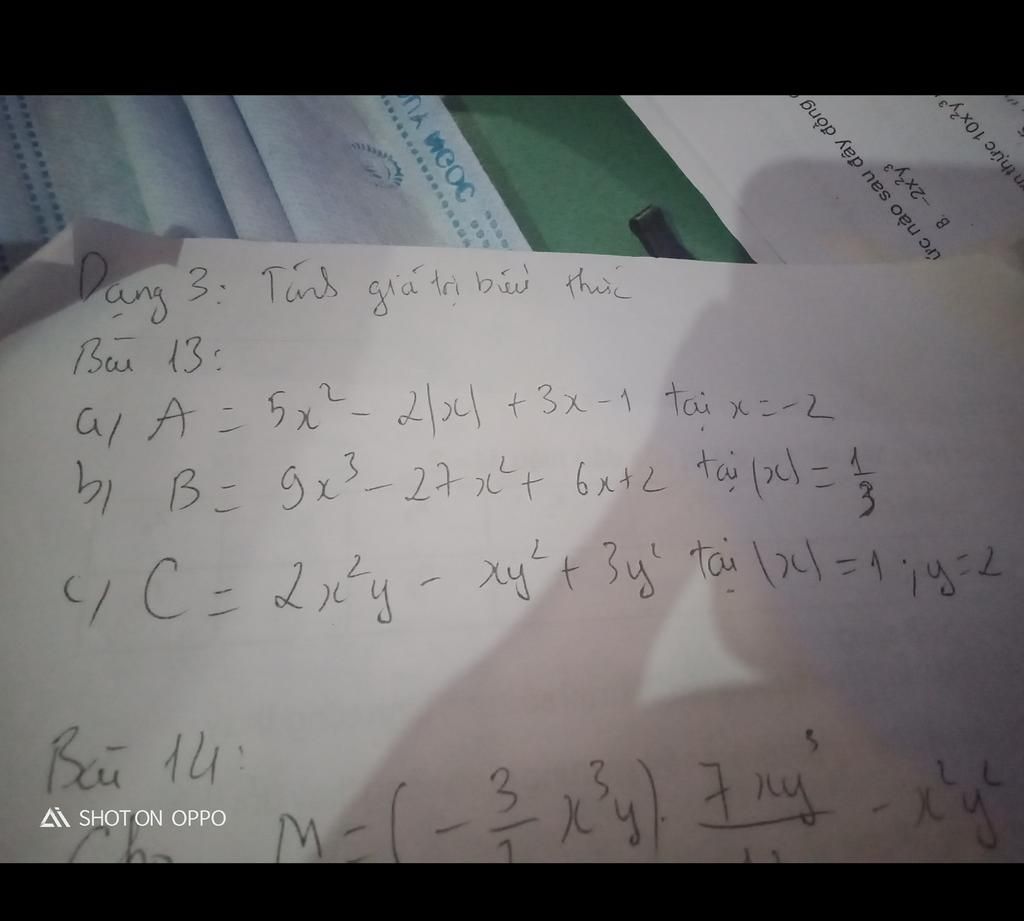 NGỌC
ức nào sau đây đồng
B. -2x²y³
n thức 10x²y³
Dạng 3: Tính giá trị biểu thức
Bài 13:
a) A = 5x² - 2|x| + 3x - 1 tại x = -2
b) B = 9x³ - 27x² + 6x + 2 tại |x| = 1/3
c) C = 2x²y - xy² + 3y² tại |x| = 1 ; y = 2
Bài 14:
Cho M = (-3/ x³y). 7xy³/ - x²y²
SHOT ON OPPO